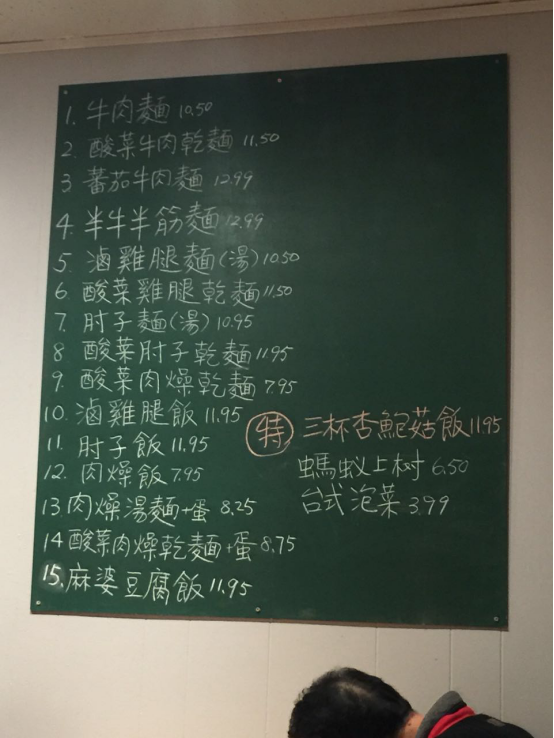 1. 牛肉麵 10.50
2. 酸菜牛肉乾麵 11.50
3 蕃茄牛肉麵 12.99
4. 半牛半筋麵 12.99
5. 滷雞腿麵(湯) 10.50
6. 酸菜雞腿乾麵 11.50
7. 肘子麵(湯) 10.95
8 酸菜肘子乾麵 11.95
9. 酸菜肉燥乾麵 7.95
10. 滷雞腿飯 11.95
11. 肘子飯 11.95
12. 肉燥飯 7.95
13 肉燥湯麵+蛋 8.25
14 酸菜肉燥乾麵+蛋 8.75
15. 麻婆豆腐飯 11.95
特 三杯杏鮑菇飯 11.95
螞蚁上树 6.50
台式泡菜 3.99